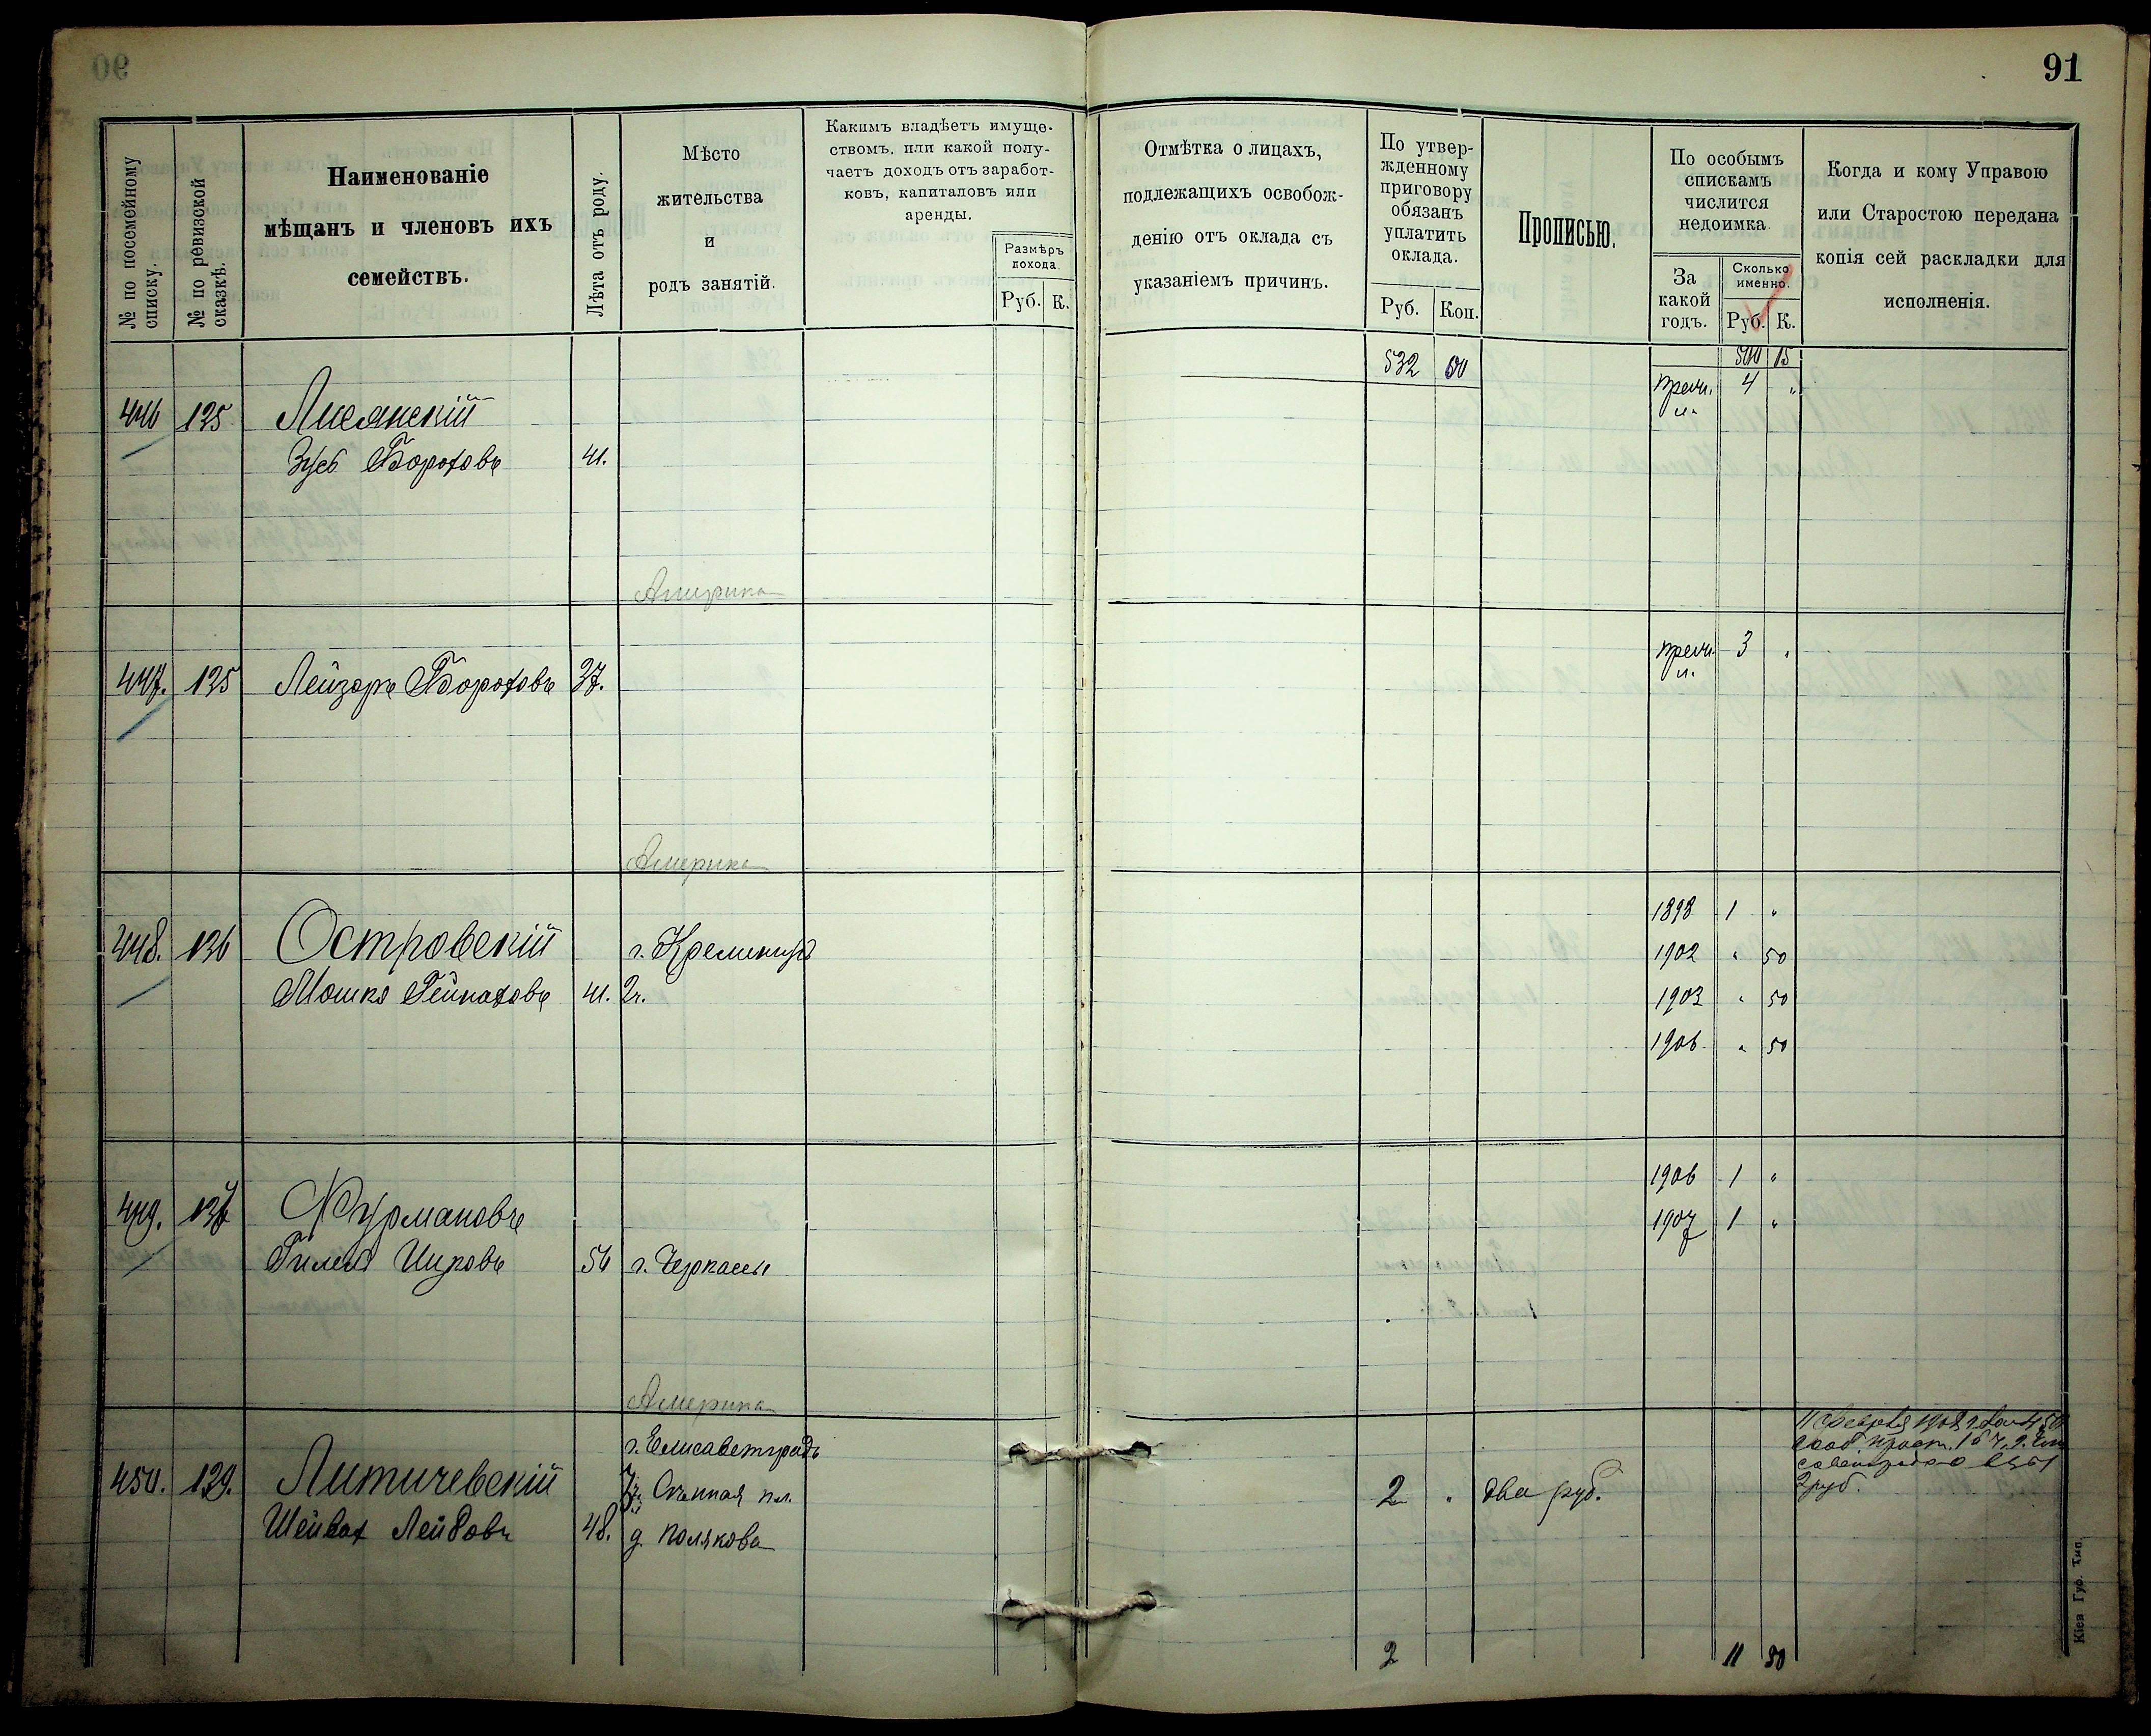 91
№ по посемейному списку.
№ по ревизской сказкѣ.
Наименованіе
мѣщанъ и членовъ ихъ
семействъ.
Лѣта отъ роду.
Мѣсто
жительства
и
родъ занятій.
Какимъ владѣетъ имуще-
ствомъ, или какой полу-
чаетъ доходъ отъ заработ-
ковъ, капиталовъ или
аренды.
Размѣръ
дохода.
Руб. К.
Отмѣтка о лицахъ,
подлежащихъ освобож-
денію отъ оклада съ
указаніемъ причинъ.
По утвер-
жденному
приговору
обязанъ
уплатить
оклада.
Руб. Коп.
Прописью.
По особымъ
спискамъ
числится
недоимка.
За
какой
годъ.
Сколько
именно.
Руб. К.
Когда и кому Управою
или Старостою передана
копія сей раскладки для
исполненія.
532 60 500 15
446 135 Лисянскій 4 "
Зусь Бороховъ 41.
Америка
447. 135 Лейзоръ Бороховъ 37. 3 "
Америка
1898 1 "
448. 136 Островскій г. Кременчугъ 1902 " 50
Мошко Пейнаховъ 41. 2г. 1903 " 50
1906 " 50
1906 1 "
449. 137 Фурмановъ 1907 1 "
56 г. Черкассы
Америка
г. Елисаветградъ
450. 139. Литичевскій Сѣнная пл. 2 " два руб. 2 руб.
Шейвах Лейбовъ 48. д. Полякова
2 11 50
Кіев Губ. Тип.